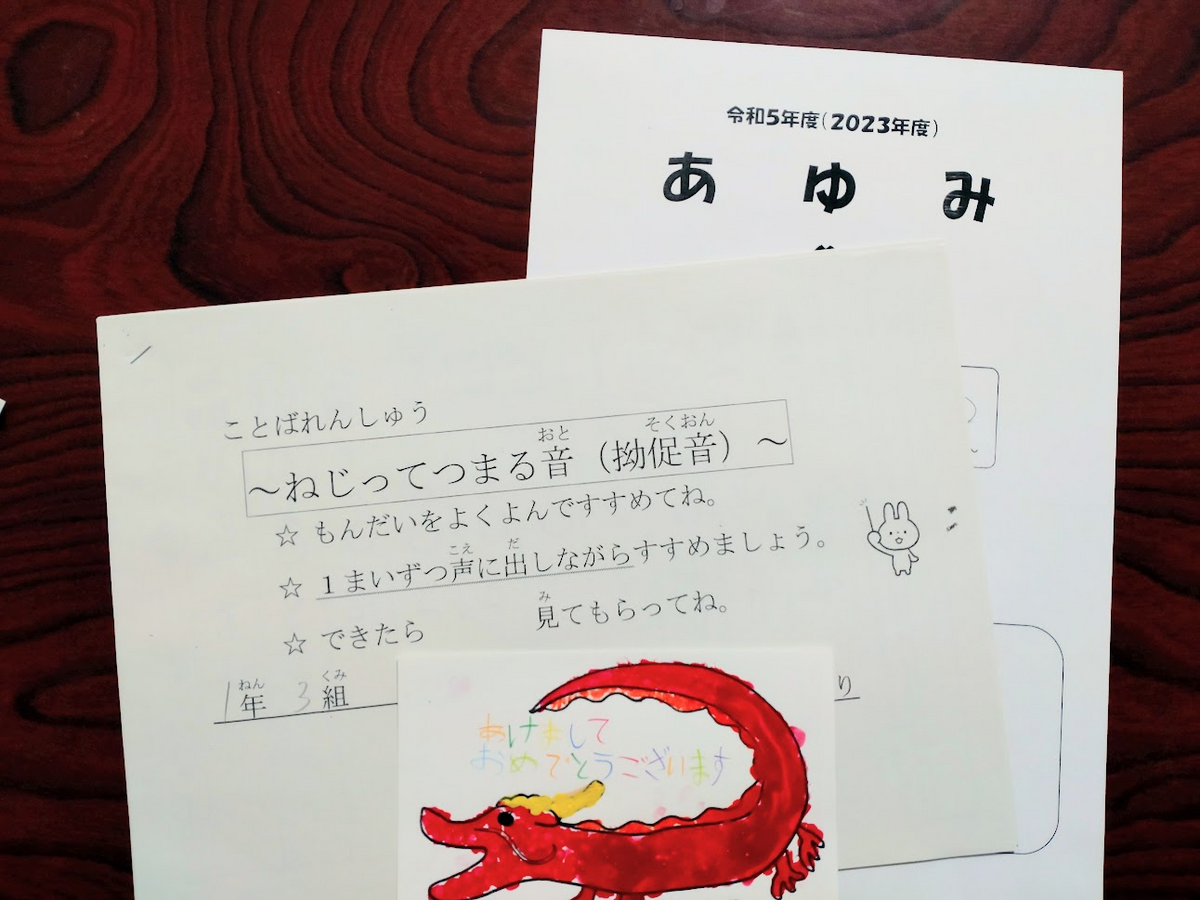 令和5年度(2023年度)
あゆみ
ことばれんしゅう
～ねじってつまる音（拗促音）～
おと
そくおん
☆ もんだいをよくよんですすめてね。
☆ 1まいずつ声に出しながらすすめましょう。
こえ
だ
☆ できたら 見てもらってね。
み
1年 3組
ねん
くみ
り
あけまして
おめでとうございます